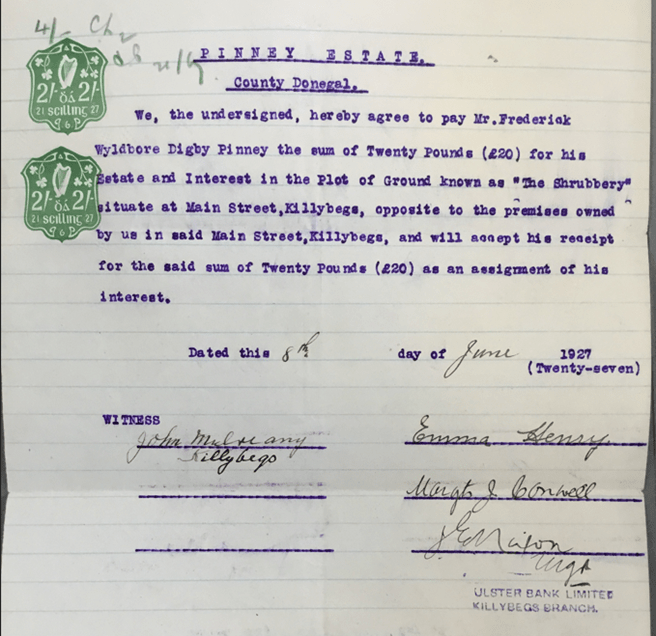 4/- Ch
PINNEY ESTATE.
County Donegal.
2/- dá 2/-
21 scilling 27
2/- dá 2/-
21 scilling 27
We, the undersigned, hereby agree to pay Mr.Frederick
Wyldbore Digby Pinney the sum of Twenty Pounds (£20) for his
Estate and Interest in the Plot of Ground known as "The Shrubbery"
situate at Main Street,Killybegs, opposite to the premises owned
by us in said Main Street,Killybegs, and will accept his receipt
for the said sum of Twenty Pounds (£20) as an assignment of his
interest.
Dated this 8th day of June 1927
(Twenty-seven)
WITNESS
John Mulreany
Killybegs
Emma Henry
Margt J Conwell
J E Nixon
Mgr
ULSTER BANK LIMITED
KILLYBEGS BRANCH.